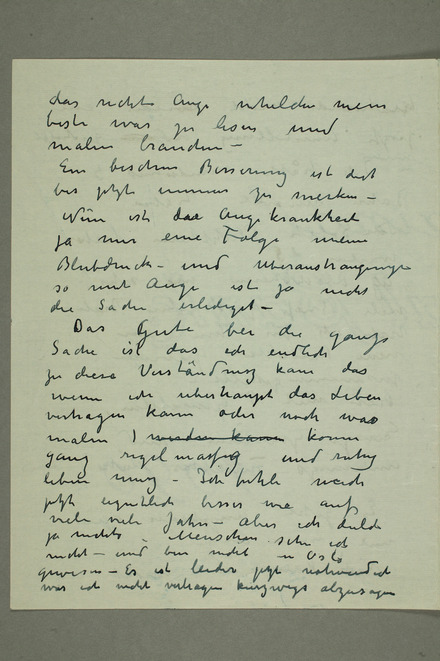 das rechte Auge
beste was zu lesen und
malen brauchen –
Ein bischen Besserung ist doch
bis jetzt immer zu merken –
Nun ist das Augekrankheit
ja nur eine Folge meine
Blutdruck – und uberanstrangunge
so mit Auge ist ja nicht
die Sache erlediget –
Das Gute bei die ganze
Sache ist das ich endlich
zu diese Verständniss kam das
wenn ich uberhaupt das Leben
vertragen kann oder noch was
malen) werden kann komm
ganz regelmassig und ruhig
leben muss – Ich fuhle mich
jetzt eigentlich besser wie auf
viele viele Jahre – aber ich dulde
ja nichts – Menschen sehe ich
nicht – und bin nicht in Oslo
gewesen – Es ist leider jetzt nothwendich
was ich nicht vertragen kurzwegs abzusagen